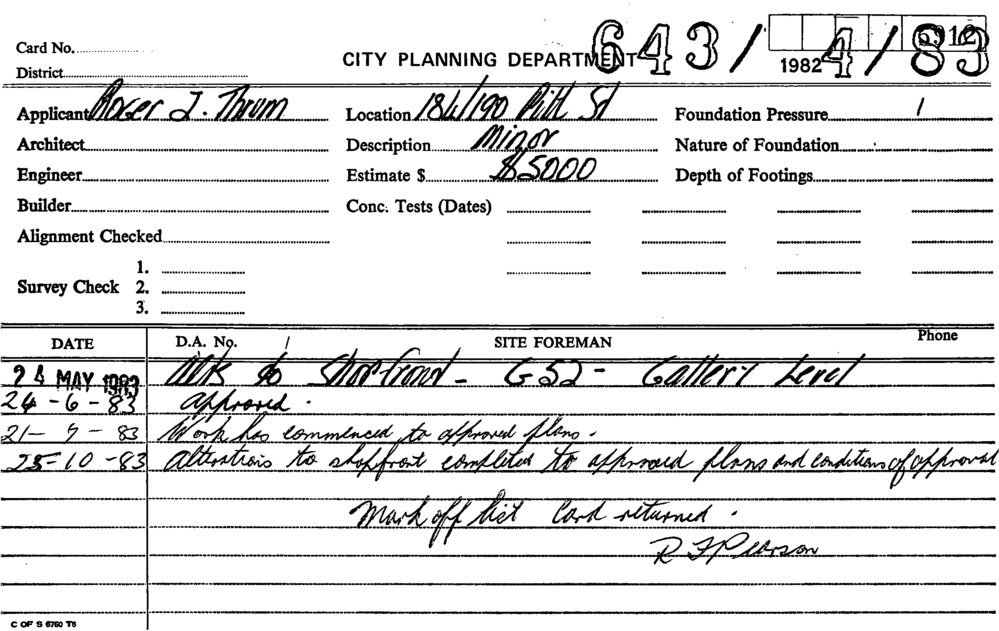 Card No.
CITY PLANNING DEPARTMENT
643/4/83
1982
District
Applicant Roger J. Thrum
Location 184/190 Pitt St
Foundation Pressure
Architect
Description Minor
Nature of Foundation
Engineer
Estimate $ $5000
Depth of Footings
Builder
Conc. Tests (Dates)
Alignment Checked
Survey Check
1.
2.
3.
DATE
D.A. No.
SITE FOREMAN
Phone
24 MAY 1983 Alts to Shopfront - G52 - Gallery Level
24-6-83 Approved.
21-9-83 Work has commenced to approved plans.
25-10-83 Alterations to shopfront completed to approved plans and conditions of approval
Mark off list Card returned.
R F Pearson
C OF S 6760 T6